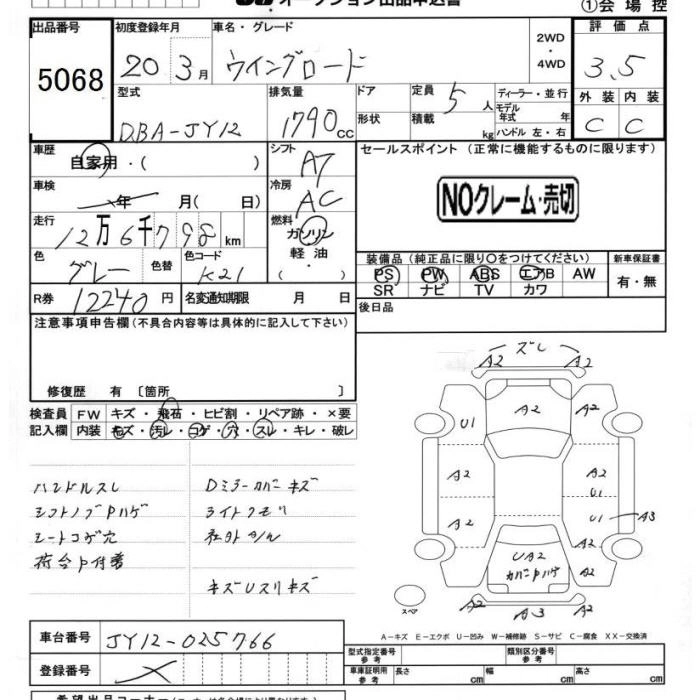 オークション出品申込書
①会場控
出品番号 初度登録年月 車名・グレード 2WD 評価点
5068 20 3月 ウイングロード ・4WD 3.5
型式 排気量 ドア 定員 5人 ディーラー・並行 外装 内装
DBA-JY12 1790cc 形状 積載 kg モデル年式 年 C C
ハンドル 左・右
車歴 シフト セールスポイント (正常に機能するものに限ります)
自家用・( ) AT
車検 年 月( 日) 冷房 AC NOクレーム・売切
走行 12万6千798km 燃料
ガソリン
色 色替 色コード 軽油 装備品 (純正品に限り○をつけてください) 新車保証書
グレー K21 ・( ) PS PW ABS エアB AW 有・無
SR ナビ TV カワ
R券 12240円 名変通知期限 月 日 後日品
注意事項申告欄(不具合内容等は具体的に記入して下さい)
修復歴 有 〔箇所 〕
検査員 FW キズ・飛石・ヒビ割・リペア跡・×要
記入欄 内装 キズ・汚レ・コゲ・穴・スレ・キレ・破レ
ハンドルスレ Dミラーカバーキズ
シフトノブPハゲ ライトクモリ
シートコゲ穴 社外アルミ
荷台P付着
キズUスリキズ
ズレ
A2 A2
U1 A2 A2
A2 A2
U1
A2 U1 A3
UA2 A2
カバーPハゲ
スペア A2 A3 A2
A-キズ E-エクボ U-凹み W-補修跡 S-サビ C-腐食 XX-交換済
車台番号 JY12-025766
登録番号
型式指定番号 参考 類別区分番号 参考
車庫証明用 参考 長さ cm 幅 cm 高さ cm